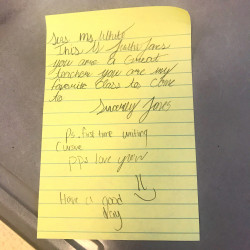 Dear Ms. White
This is Jones
you are a Great
teacher you are my
favorite class to come
to
Sincerly Jones
Ps. first time writing
Cursive
pps love yew
Have a good
Day